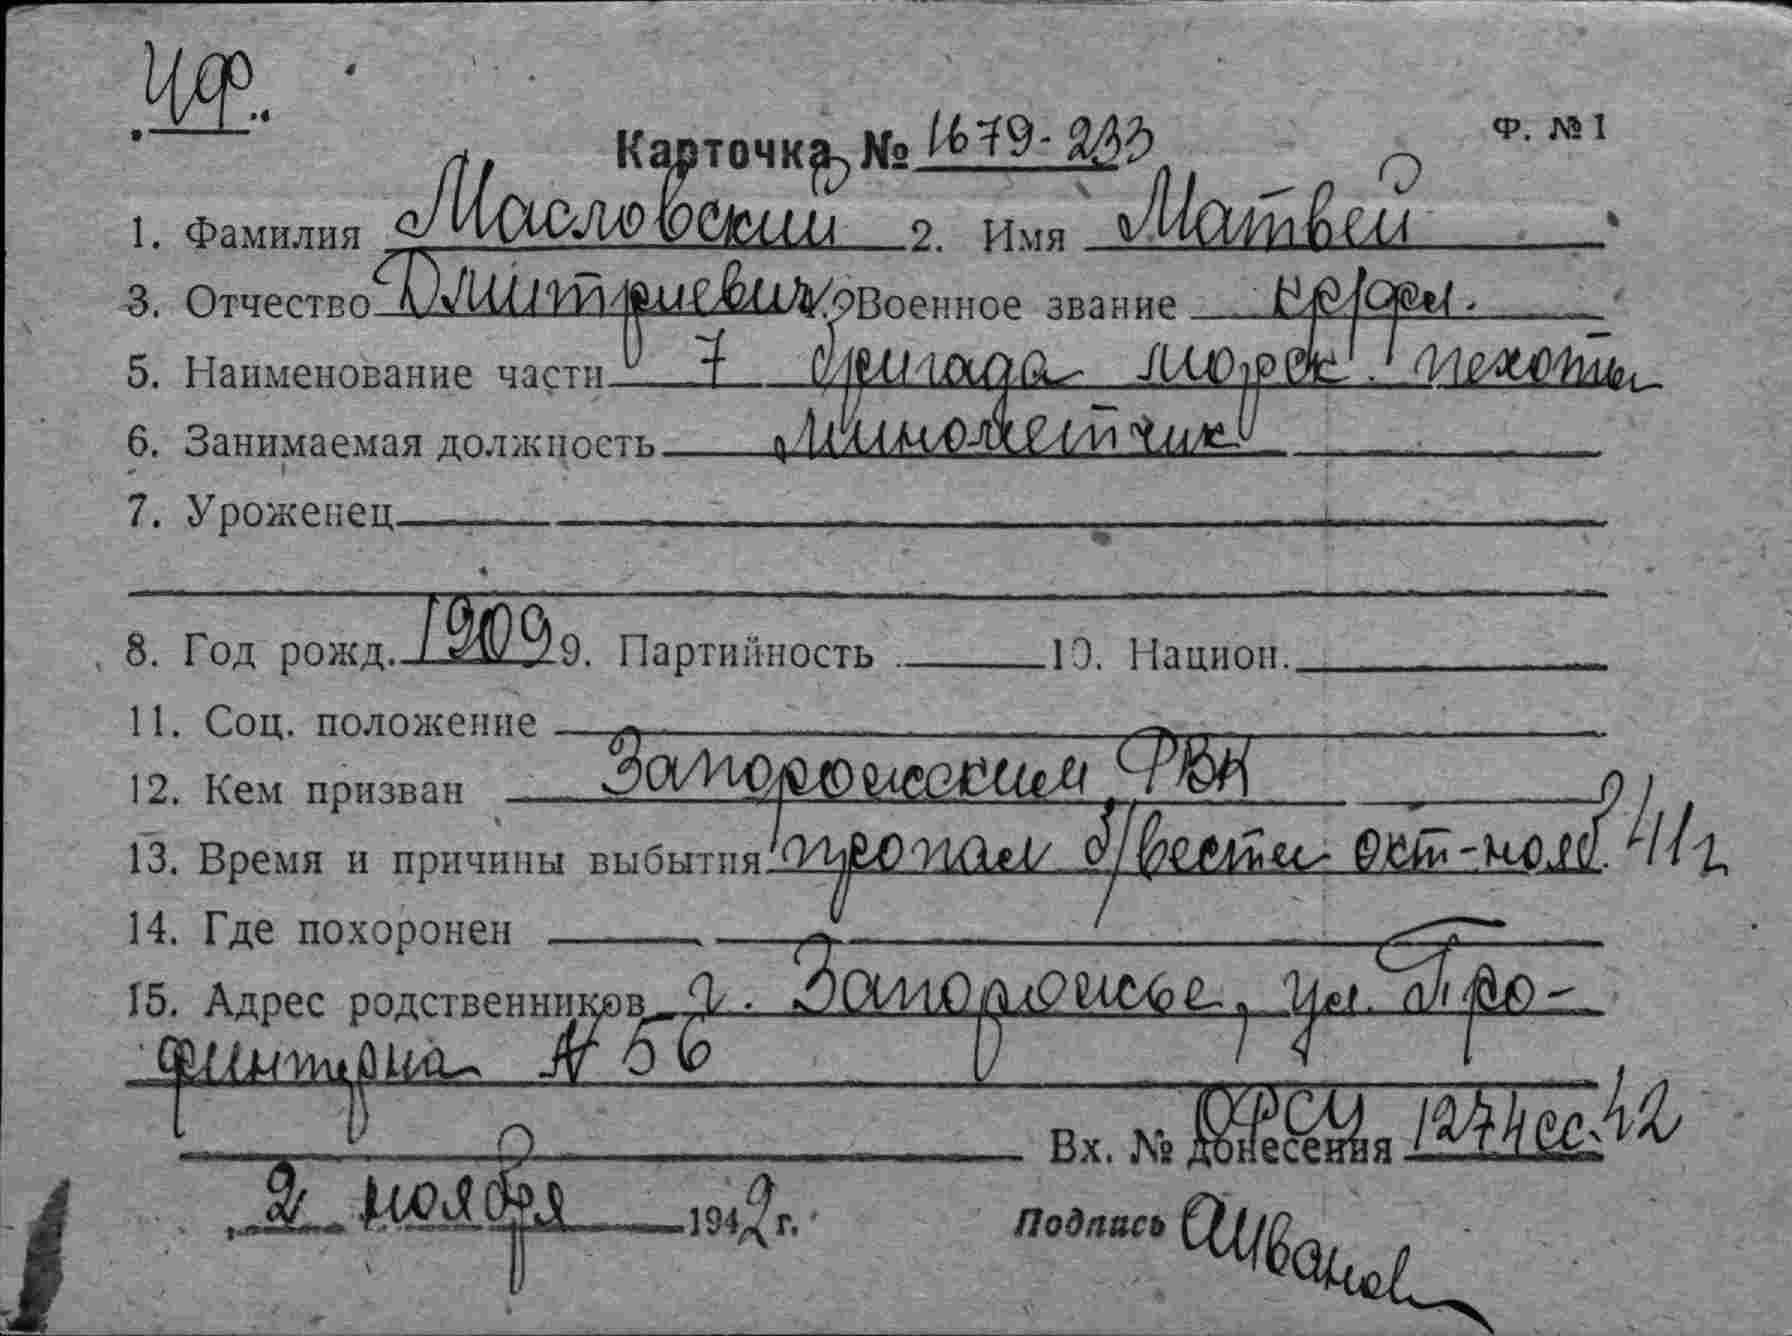 ЧФ.
Карточка № 1679-233 Ф. № 1
1. Фамилия Масловский 2. Имя Матвей
3. Отчество Дмитриевич Военное звание кр/фл.
5. Наименование части 7 бригада морск. пехоты
6. Занимаемая должность Минометчик
7. Уроженец
8. Год рожд. 1909 9. Партийность 10. Национ.
11. Соц. положение
12. Кем призван Запорожским РВК
13. Время и причины выбытия пропал б/вести окт-нояб. 41 г
14. Где похоронен
15. Адрес родственников г. Запорожье, ул. Про-
финтерна N 56
Вх. № донесения ОРСУ 1274сс. 42
2 ноября 1942 г. Подпись АИванов